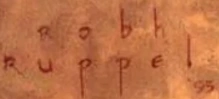 Robh
Ruppel
'95